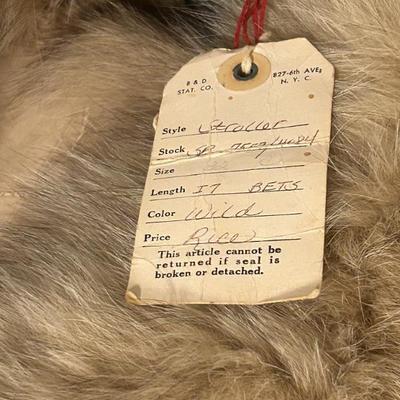 B & D
STAT. CO.
827-6th AVE.
N. Y. C.
Style Stroller
Stock
Size
Length 17 BETS
Color Wild
Price Rice
This article cannot be
returned if seal is
broken or detached.